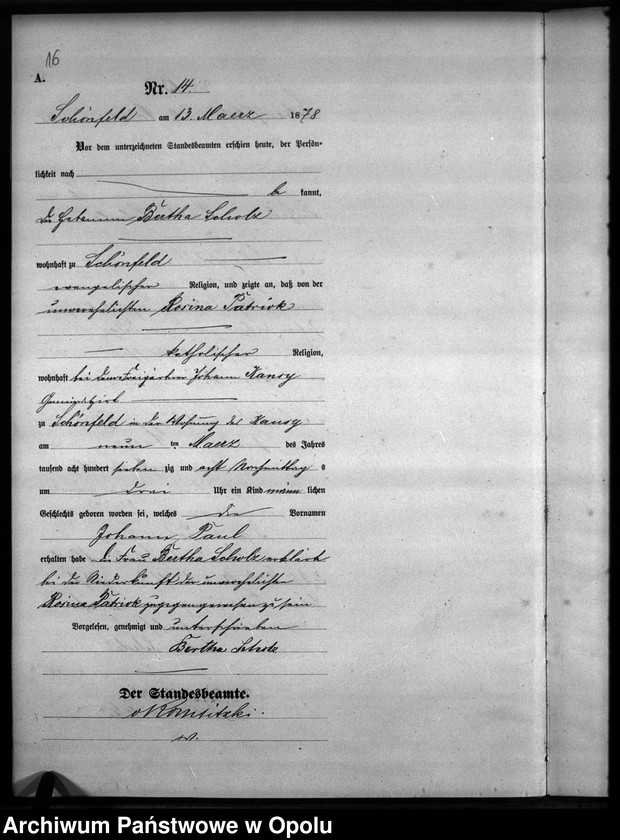 16
A.
Nr. 14.
Schönfeld am 13. Maerz 1878
Vor dem unterzeichneten Standesbeamten erschien heute, der Persön-
lichkeit nach
be kannt,
die Hebamme Bertha Scholz
wohnhaft zu Schönfeld
evangelischer Religion, und zeigte an, daß von der
unverehelichten Rosina Patriok
katholischer Religion,
wohnhaft bei dem Johann Kansy
zu Schönfeld in der Wohnung des Kansy
am neun ten Maerz des Jahres
tausend acht hundert sieben zig und acht Vormittag s
um drei Uhr ein Kind männ lichen
Geschlechts geboren worden sei, welches die Vornamen
Johann Paul
erhalten habe Die Frau Bertha Scholz erklärt
bei der Niederkunft der unverehelichte
Rosina Patriok zugegen gewesen zu sein
Vorgelesen, genehmigt und unterschrieben
Bertha Scholz
Der Standesbeamte.
Archiwum Państwowe w Opolu